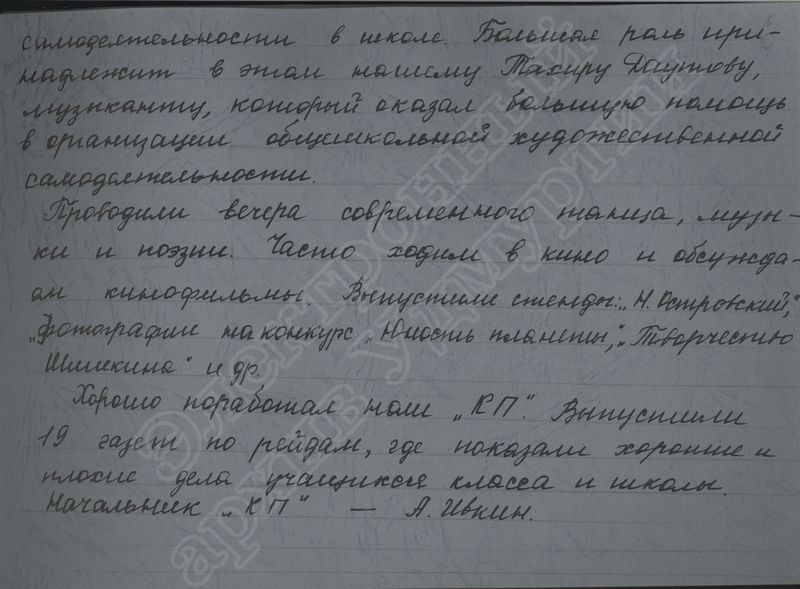 самодеятельности в школе. Большая роль при-
надлежит в этом нашему Тахиру Даутову,
музыканту, который оказал большую помощь
в организации общешкольной художественной
самодеятельности.
Проводили вечера современного танца, музы-
ки и поэзии. Часто ходим в кино и обсужда-
ем кинофильмы. Выпустили стенды: „Н. Островский",
„Фотографии на конкурс „Юность планеты", „Творчество
Шишкина" и др.
Хорошо поработал наш „КП". Выпустили
19 газет по рейдам, где показали хорошие и
плохие дела учащихся класса и школы.
Начальник „КП" — А. Ивкин.
Электронный
архив Удмуртии